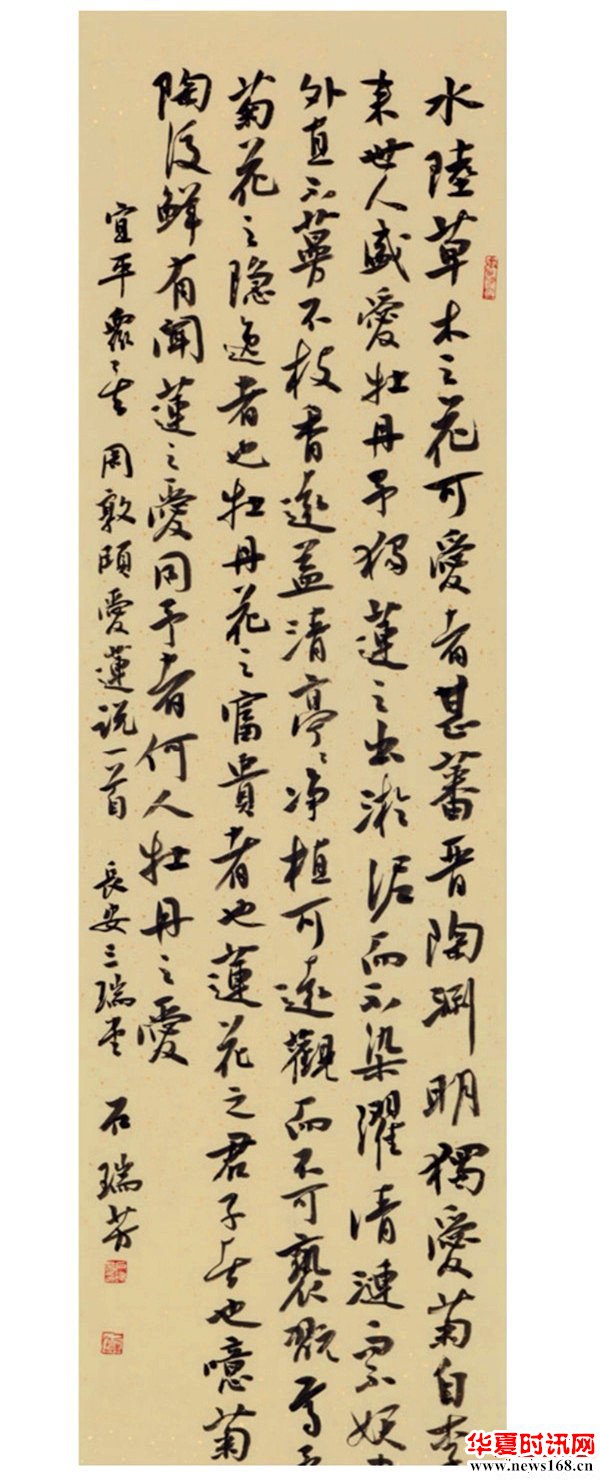 水陸草木之花可愛者甚蕃晋陶渊明獨愛菊自李
来世人盛愛牡丹予独蓮之出淤泥而不染濯清漣而不妖
外直不蔓不枝香遠益清亭亭净植可遠觀而不可褻翫焉予
菊花之隐逸者也牡丹花之富貴者也蓮花之君子者也噫菊
陶后鮮有聞蓮之愛同予者何人牡丹之愛
宜平衆矣 周敦頤愛蓮说一首 長安三瑞堂 石瑞芳
华夏时讯网
www.news168.cn